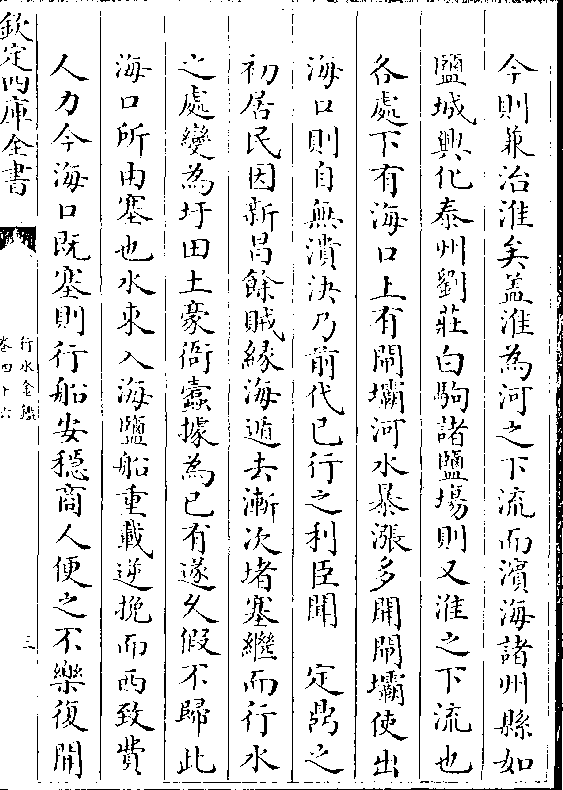 今則兼治淮矣盖淮為河之下流而濱海諸州縣如
鹽城興化泰州劉莊白駒諸鹽塲則又淮之下流也
各處下有海口上有閘壩河水暴漲多開閘壩使出
海口則自無潰決乃前代已行之利臣聞　定鼎之
初居民因新昌餘賊緣海遁去漸次堵塞繼而行水
之處變為圩田土豪衙蠹據為已有遂久假不歸此
海口所由塞也水東入海鹽船重載逆挽而西致費
人力今海口既塞則行船安穩商人便之不樂復開
欽定四庫全書
行水金鑑
卷四十六
三